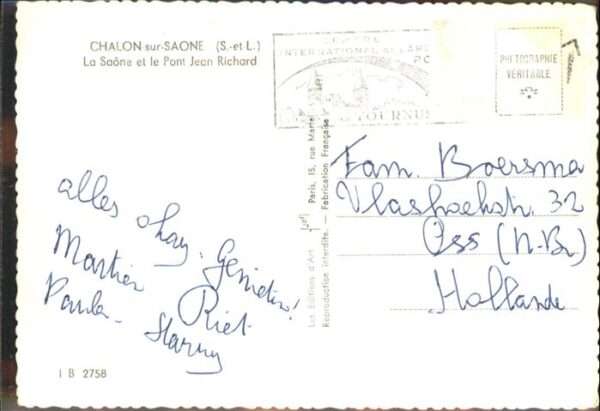 CHALON sur-SAONE (S.-et L.)
La Saône et le Pont Jean Richard
CENTRE
INTERNATIONAL
TOURNUS
PHOTOGRAPHIE
VÉRITABLE
Les Editions d'Art Paris, 15, rue Martel
Reproduction interdite. — Fabrication Française
alles okay. Genieten!
Martien Riet
Paula - Harry
Fam. Boersma
32
Oss (N-Br)
Hollande
I B 2758